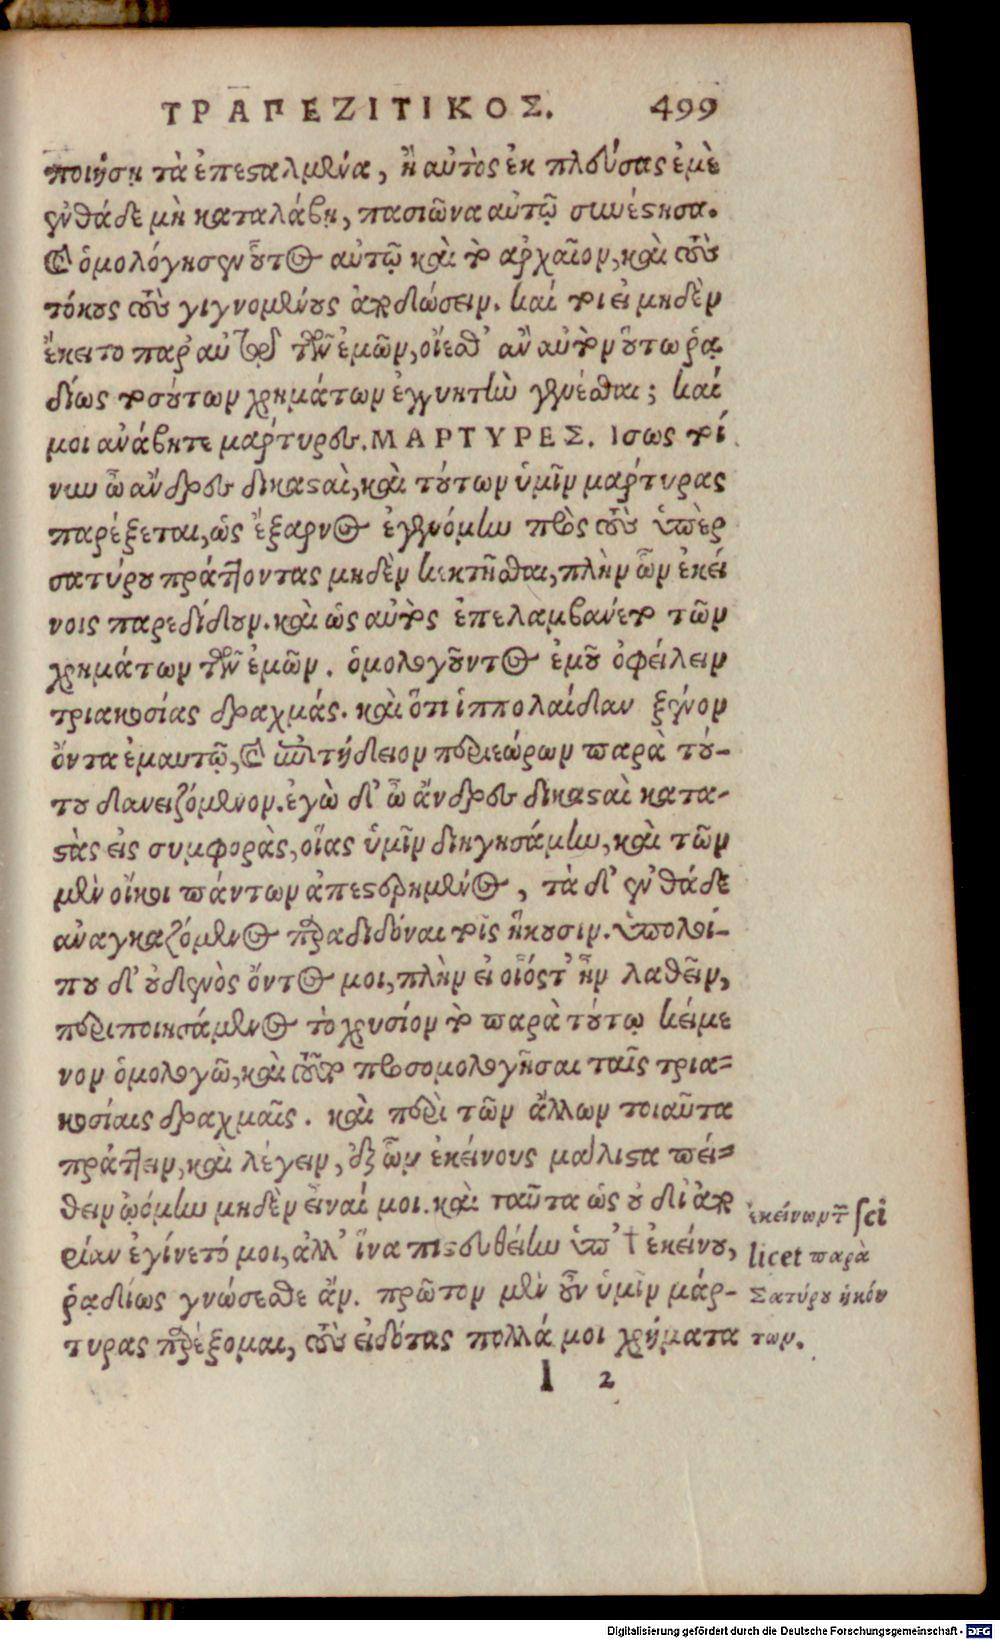 ΤΡΑΠΕΖΙΤΙΚΟΣ. 499
ποιήσῃ τὰ ἐπεσταλμένα, ἢ αὐτὸς ἐκπλεύσας ἐμὲ
ἐνθάδε μὴ καταλάβῃ, πασιῶνα αὐτῷ συνέστησα.
καὶ ὁμολόγησεν οὗτος αὐτῷ καὶ τὸ ἀρχαῖον, καὶ τοὺς
τόκους τοὺς γιγνομένους ἀποδώσειν. καί τοι εἰ μηδὲν
ἔκειτο παρ' αὐτῷ τῶν ἐμῶν, οἴεσθ' ἂν αὐτὸν οὕτω ῥᾳ
δίως τοσούτων χρημάτων ἐγγυητὴν γενέσθαι; καί
μοι ἀνάβητε μάρτυρες. ΜΑΡΤΥΡΕΣ. Ισως τοί
νυν ὦ ἄνδρες δικασταὶ, καὶ τούτων ὑμῖν μάρτυρας
παρέξεται, ὡς ἔξαρνος ἐγενόμην πρὸς τοὺς ὑπὲρ
σατύρου πράττοντας μηδὲν κεκτῆσθαι, πλὴν ὧν ἐκεί
νοις παρεδίδουν. καὶ ὡς αὐτὸς ἐπελαμβάνετο τῶν
χρημάτων τῶν ἐμῶν. ὁμολογοῦντος ἐμοῦ ὀφείλειν
τριακοσίας δραχμάς. καὶ ὅτι ἱππολαίδαν ξένον
ὄντα ἐμαυτῷ, καὶ ἐπιτήδειον περιεώρων παρὰ τού-
του δανειζόμενον. ἐγὼ δ' ὦ ἄνδρες δικασταὶ κατα-
στὰς εἰς συμφορὰς, οἵας ὑμῖν διηγησάμην, καὶ τῶν
μὲν οἴκοι πάντων ἀπεστερημένος, τὰ δ' ἐνθάδε
ἀναγκαζόμενος παραδιδόναι τοῖς ἥκουσιν. ὑπολοί-
που δ' οὐδενὸς ὄντος μοι, πλὴν εἰ οἷόςτ' ἦν λαθεῖν,
περιποιησάμενος τὸ χρυσίον τὸ παρὰ τούτῳ κείμε
νον ὁμολογῶ, καὶ τοῦτο προσομολογῆσαι ταῖς τρια-
κοσίαις δραχμαῖς. καὶ περὶ τῶν ἄλλων τοιαῦτα
πράττειν, καὶ λέγειν, ἐξ ὧν ἐκείνους μάλιστα πεί-
θειν ᾠόμην μηδὲν εἶναί μοι. καὶ ταῦτα ὡς οὐ δι' ἀπο
ρίαν ἐγίνετό μοι, ἀλλ' ἵνα πιστευθείην ὑπ' † ἐκείνου,
ῥᾳδίως γνώσεσθε ἄν. πρῶτον μὲν οὖν ὑμῖν μάρ-
τυρας παρέξομαι, τοὺς εἰδότας πολλά μοι χρήματα
ἐκείνων τ̄ sci
licet παρὰ
Σατύρου ἡκόν
των.
I 2
Digitalisierung gefördert durch die Deutsche Forschungsgemeinschaft - DFG